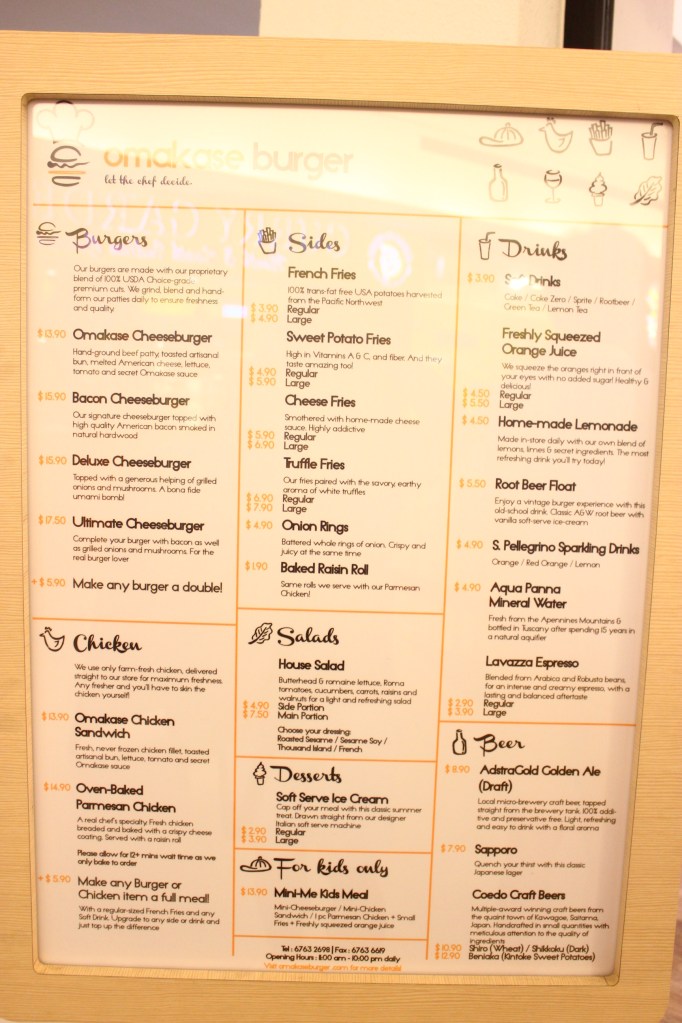 omakase burger
let the chef decide.
Burgers
Our burgers are made with our proprietary
blend of 100% USDA Choice-grade,
premium cuts. We grind, blend and hand-
form our patties daily to ensure freshness
and quality
$13.90 Omakase Cheeseburger
Hand-ground beef patty, toasted artisanal
bun, melted American cheese, lettuce,
tomato and secret Omakase sauce
$15.90 Bacon Cheeseburger
Our signature cheeseburger topped with
high quality American bacon smoked in
natural hardwood
$15.90 Deluxe Cheeseburger
Topped with a generous helping of grilled
onions and mushrooms. A bona fide
umami bomb!
$17.50 Ultimate Cheeseburger
Complete your burger with bacon as well
as grilled onions and mushrooms. For the
real burger lover
+ $5.90 Make any burger a double!
Chicken
We use only farm-fresh chicken, delivered
straight to our store for maximum freshness.
Any fresher and you'll have to skin the
chicken yourself!
$13.90 Omakase Chicken
Sandwich
Fresh, never frozen chicken fillet, toasted
artisanal bun, lettuce, tomato and secret
Omakase sauce
$14.90 Oven-Baked
Parmesan Chicken
A real chef's specialty. Fresh chicken
breaded and baked with a crispy cheese
coating. Served with a raisin roll
Please allow for 12+ mins wait time as we
only bake to order
+ $5.90 Make any Burger or
Chicken item a full meal!
With a regular-sized French Fries and any
Soft Drink. Upgrade to any side or drink and
just top up the difference
Sides
French Fries
100% trans-fat free USA potatoes harvested
from the Pacific Northwest
$3.90 Regular
$4.90 Large
Sweet Potato Fries
High in Vitamins A & C, and fiber. And they
taste amazing too!
$4.90 Regular
$5.90 Large
Cheese Fries
Smothered with home-made cheese
sauce. Highly addictive
$5.90 Regular
$6.90 Large
Truffle Fries
Our fries paired with the savory, earthy
aroma of white truffles
$6.90 Regular
$7.90 Large
$4.90 Onion Rings
Battered whole rings of onion. Crispy and
juicy at the same time
$1.90 Baked Raisin Roll
Same rolls we serve with our Parmesan
Chicken!
Salads
House Salad
Butterhead & romaine lettuce, Roma
tomatoes, cucumbers, carrots, raisins and
walnuts for a light and refreshing salad
$4.90 Side Portion
$7.50 Main Portion
Choose your dressing:
Roasted Sesame / Sesame Soy /
Thousand Island / French
Desserts
Soft Serve Ice Cream
Cap off your meal with this classic summer
treat. Drawn straight from our designer
Italian soft serve machine
$2.90 Regular
$3.90 Large
For kids only
$13.90 Mini-Me Kids Meal
Mini-Cheeseburger / Mini-Chicken
Sandwich / 1 pc Parmesan Chicken + Small
Fries + Freshly squeezed orange juice
Tel : 6763 2698 | Fax : 6763 6619
Opening Hours : 11:00 am - 10:00 pm daily
Visit omakaseburger.com for more details!
Drinks
$3.90 Soft Drinks
Coke / Coke Zero / Sprite / Rootbeer /
Green Tea / Lemon Tea
Freshly Squeezed
Orange Juice
We squeeze the oranges right in front of
your eyes with no added sugar! Healthy &
delicious!
$4.50 Regular
$5.50 Large
$4.50 Home-made Lemonade
Made in-store daily with our own blend of
lemons, limes & secret ingredients. The most
refreshing drink you'll try today!
$5.50 Root Beer Float
Enjoy a vintage burger experience with this
old-school drink. Classic A&W root beer with
vanilla soft-serve ice-cream
$4.90 S. Pellegrino Sparkling Drinks
Orange / Red Orange / Lemon
$4.90 Aqua Panna
Mineral Water
Fresh from the Apennines Mountains &
bottled in Tuscany after spending 15 years in
a natural aquifier
Lavazza Espresso
Blended from Arabica and Robusta beans,
for an intense and creamy espresso, with a
lasting and balanced aftertaste
$2.90 Regular
$3.90 Large
Beer
$8.90 AdstraGold Golden Ale
(Draft)
Local micro-brewery craft beer, tapped
straight from the brewery tank. 100% addi-
tive and preservative free. Light, refreshing
and easy to drink with a floral aroma
$7.90 Sapporo
Quench your thirst with this classic
Japanese lager
Coedo Craft Beers
Multiple-award winning craft beers from
the quaint town of Kawagoe, Saitama,
Japan. Handcrafted in small quantities with
meticulous attention to the quality of
ingredients
$10.90 Shiro (Wheat) / Shikkoku (Dark)
$12.90 Beniaka (Kintoke Sweet Potatoes)